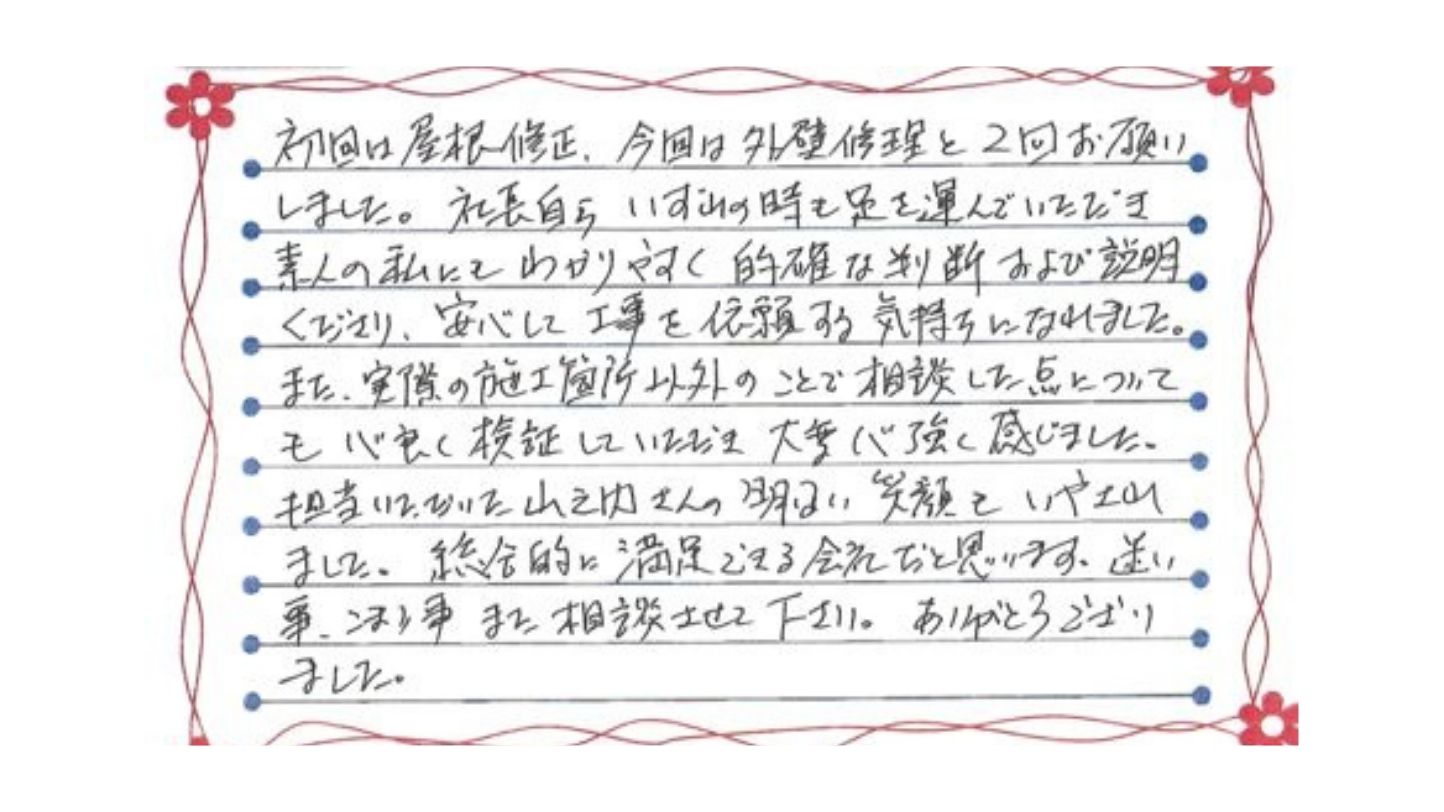 初回は屋根修正、今回は外壁修理と2回お願い
しました。社長自らいずれの時も足を運んでいただき
素人の私にもわかりやすく的確な判断および説明
くださり、安心して工事を依頼する気持ちになれました。
また、実際の施工箇所以外のことで相談した点について
も心良く検証していただき大変心強く感じました。
担当いただいた山之内さんの明るい笑顔もいやされ
ました。総合的に満足できる会社だと思います。迷い
事、こまり事また相談させて下さい。ありがとうござい
ました。